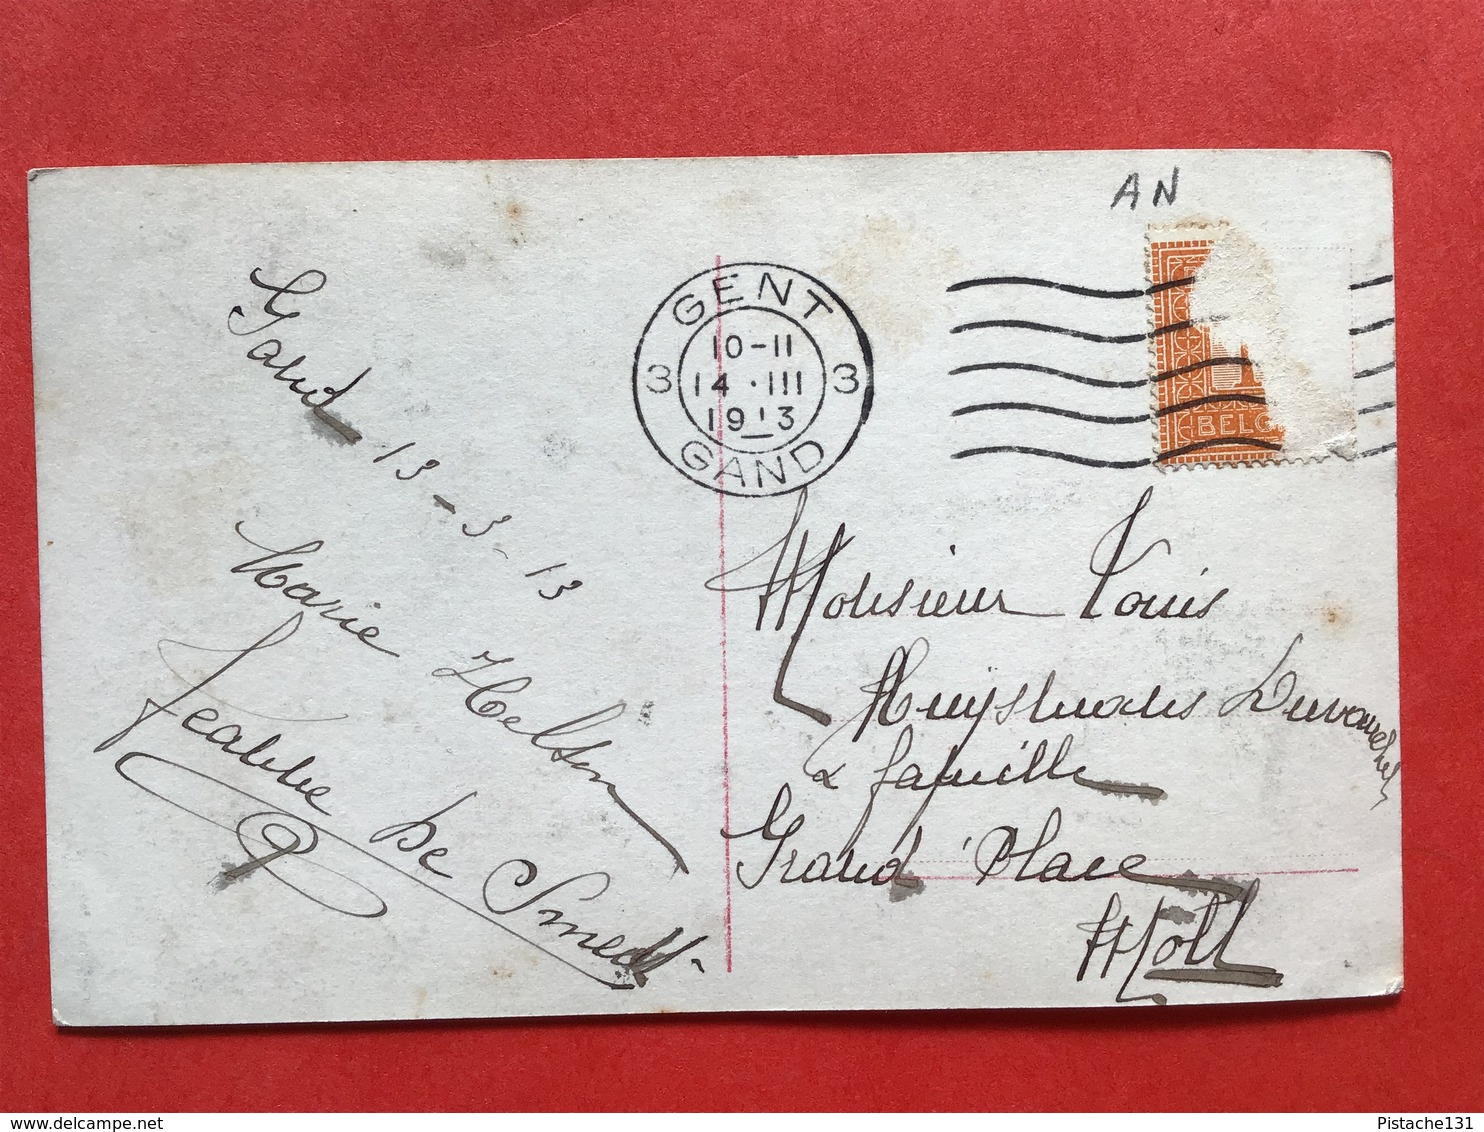 AN
GENT
3 10-11 3
14 · III
1913
GAND
BELG
Gand 13-3-13
Marie Helson
Jeanne De Smedt
Monsieur Louis
& famille
Grand'Place
Moll
Pistache131